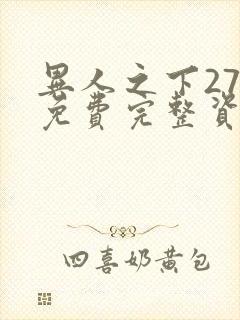 異人之下27
免費完整資
四喜奶黃包